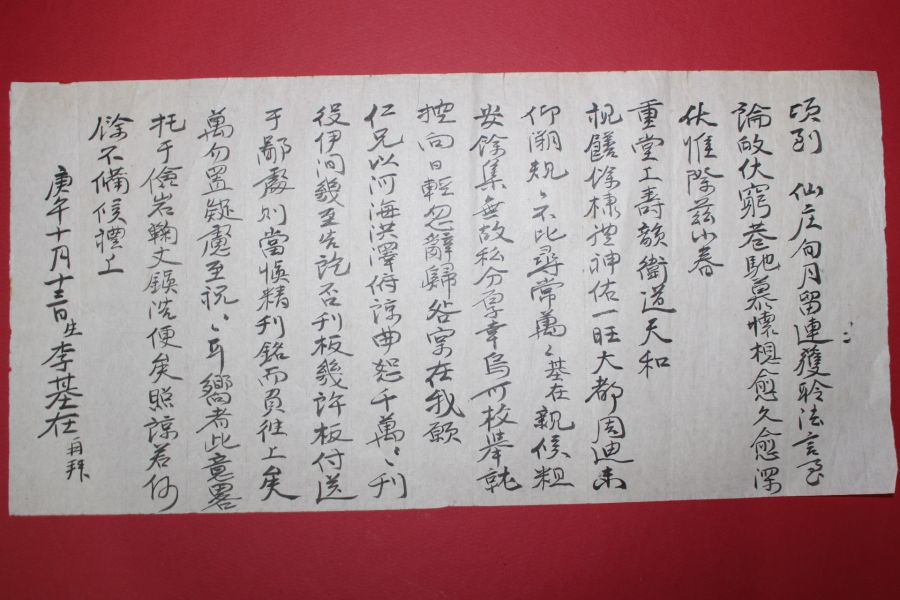 頃到 仙庄旬月留連獲聆法言至
論 伏窮巷馳慕懷想愈久愈深
伏惟際茲小春
重堂上壽韻衛道天和
棣體神佑一旺大都周迪來
仰溯規〻不比尋常萬〻基在親候粗
安餘集無故私分厚幸烏可校舉就
控向日輕忽辭歸咎實在我願
仁兄以河海洪澤俯諒曲恕千萬〻刊
役伊間幾至告訖否刊板幾許板付送
于鄙處則當愼精刊銘而負往上矣
萬勿置疑慮至祝〻耳嚮者此意畧
托于儉岩鞠丈 便矣照諒若何
餘不備候禮上
庚午十月十三日生李基在再拜